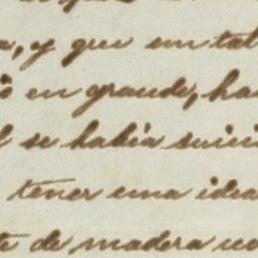 a, y que un tal
ó en grande, ha
l se había suici
tener una idea
te de madera